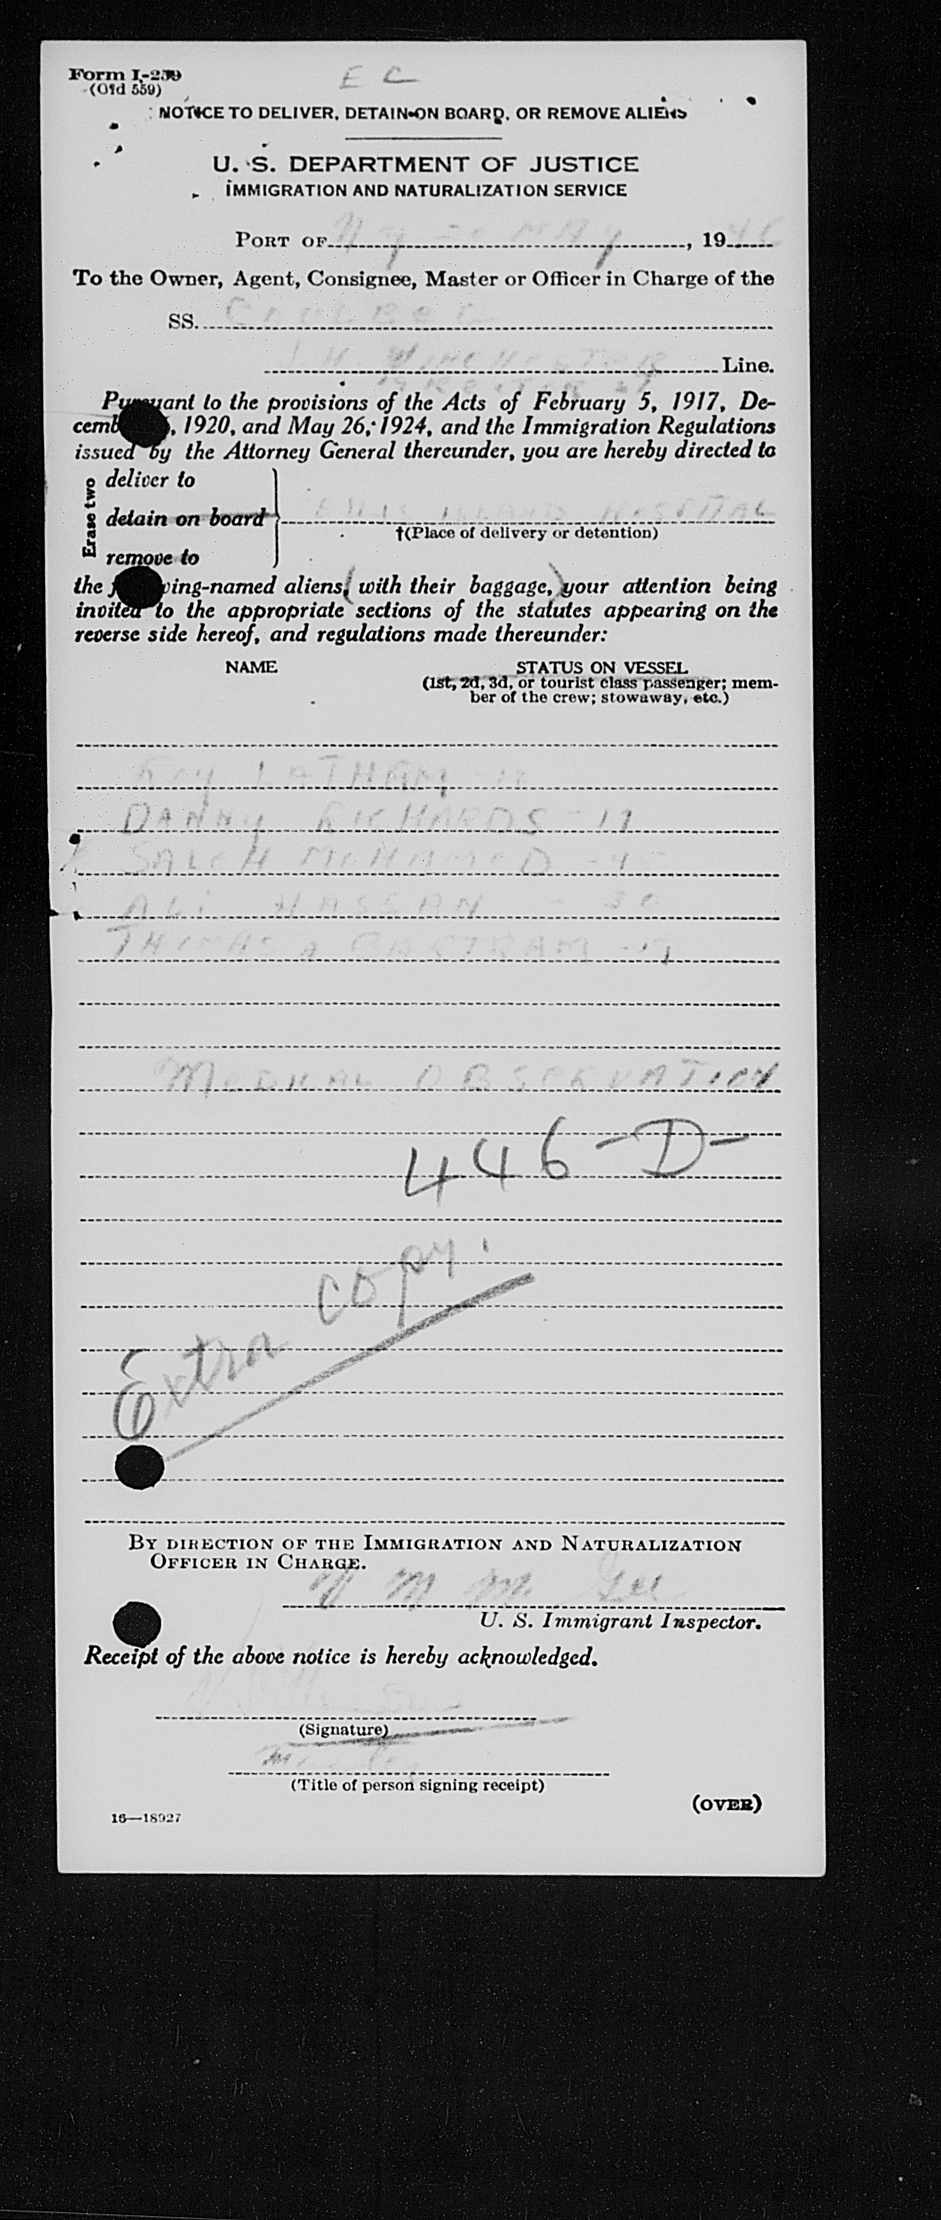 Form I-259
(Old 559)
E C
NOTICE TO DELIVER, DETAIN ON BOARD, OR REMOVE ALIENS
U. S. DEPARTMENT OF JUSTICE
IMMIGRATION AND NATURALIZATION SERVICE
PORT OF N y May, 1946
To the Owner, Agent, Consignee, Master or Officer in Charge of the
SS.
J. H. WINCHESTER Line.
Pursuant to the provisions of the Acts of February 5, 1917, De-
cember, 1920, and May 26, 1924, and the Immigration Regulations
issued by the Attorney General thereunder, you are hereby directed to
Erase two
deliver to
detain on board ELLIS ISLAND HOSPITAL
†(Place of delivery or detention)
remove to
the following-named aliens, (with their baggage,) your attention being
invited to the appropriate sections of the statutes appearing on the
reverse side hereof, and regulations made thereunder:
NAME STATUS ON VESSEL
(1st, 2d, 3d, or tourist class passenger; mem-
ber of the crew; stowaway, etc.)
ROY LATHAM
DANNY RICHARDS - 17
SALEH MOHAMED
ALI HASSAN - 30
THOMAS A BARTRAM
MEDICAL OBSERVATION
446-D-
Extra copy.
BY DIRECTION OF THE IMMIGRATION AND NATURALIZATION
OFFICER IN CHARGE.
U. S. Immigrant Inspector.
Receipt of the above notice is hereby acknowledged.
(Signature)
(Title of person signing receipt)
(OVER)
16—18927